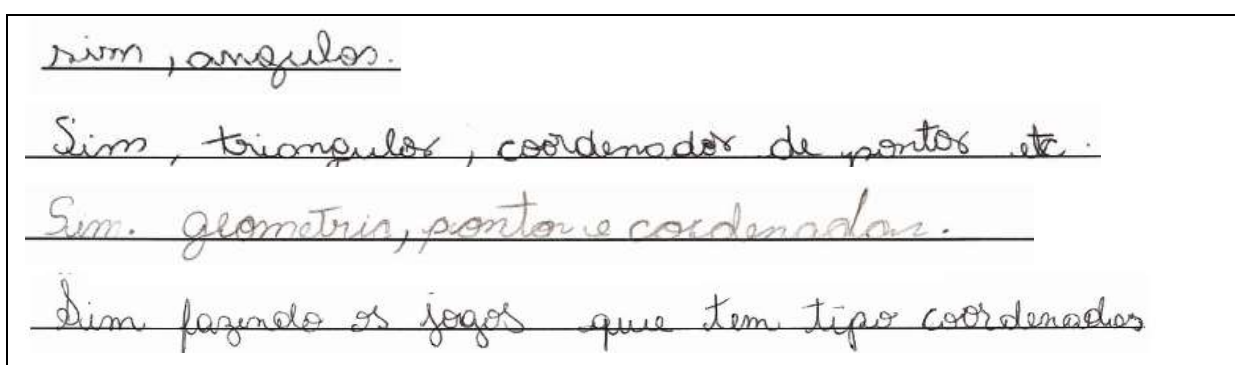 sim, angulos.
Sim, triangulos, coordenados de pontos etc.
Sim. geometria, pontos e coordenadas.
Sim fazendo os jogos que tem tipo coordenadas